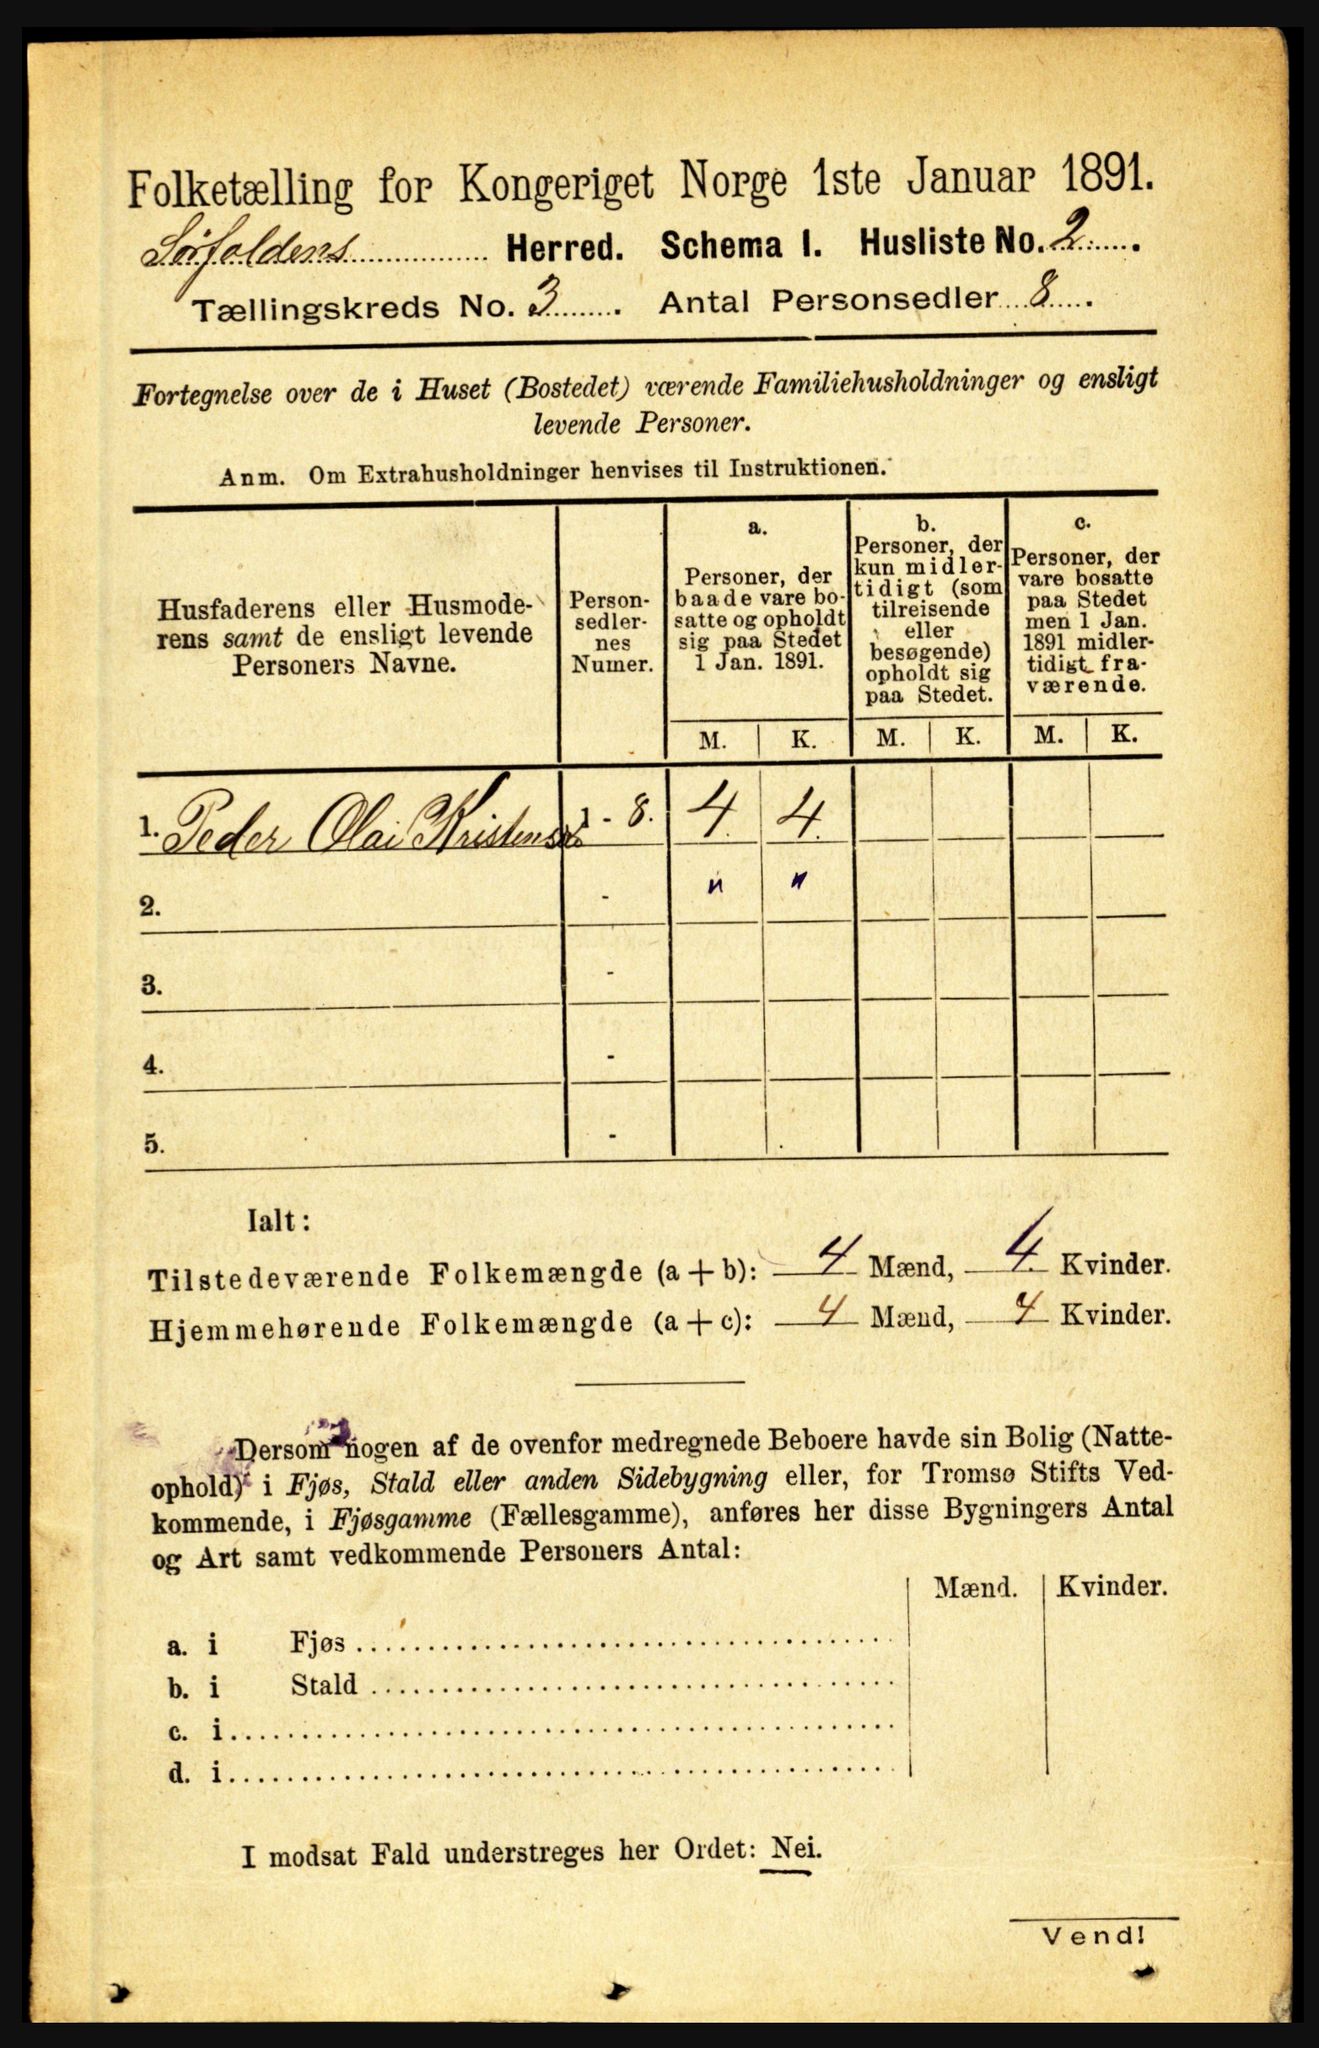 Folketælling for Kongeriget Norge 1ste Januar 1891.
Sørfoldens Herred. Schema 1. Husliste No. 2.
Tællingskreds No. 3. Antal Personsedler 8.
Fortegnelse over de i Huset (Bostedet) værende Familiehusholdninger og ensligt
levende Personer.
Anm. Om Extrahusholdninger henvises til Instruktionen.
Husfaderens eller Husmode-
rens samt de ensligt levende
Personers Navne.
Person-
sedler-
nes
Numer.
a.
Personer, der
baade vare bo-
satte og opholdt
sig paa Stedet
1 Jan. 1891.
b.
Personer, der
kun midler-
tidigt (som
tilreisende
eller
besøgende)
opholdt sig
paa Stedet.
c.
Personer, der
vare bosatte
paa Stedet
men 1 Jan.
1891 midler-
tidigt fra-
værende.
M. K. M. K. M. K.
1. Peder Olai Kristensen 1 - 8. 4. 4.
2. - " "
3. -
4. -
5. -
Ialt:
Tilstedeværende Folkemængde (a+b): 4 Mænd, 4 Kvinder.
Hjemmehørende Folkemængde (a+c): 4 Mænd, 4 Kvinder.
Dersom nogen af de ovenfor medregnede Beboere havde sin Bolig (Natte-
ophold) i Fjøs, Stald eller anden Sidebygning eller, for Tromsø Stifts Ved-
kommende, i Fjøsgamme (Fællesgamme), anføres her disse Bygningers Antal
og Art samt vedkommende Personers Antal:
Mænd. Kvinder.
a. i Fjøs
b. i Stald
c. i
d. i
I modsat Fald understreges her Ordet: Nei.
Vend!